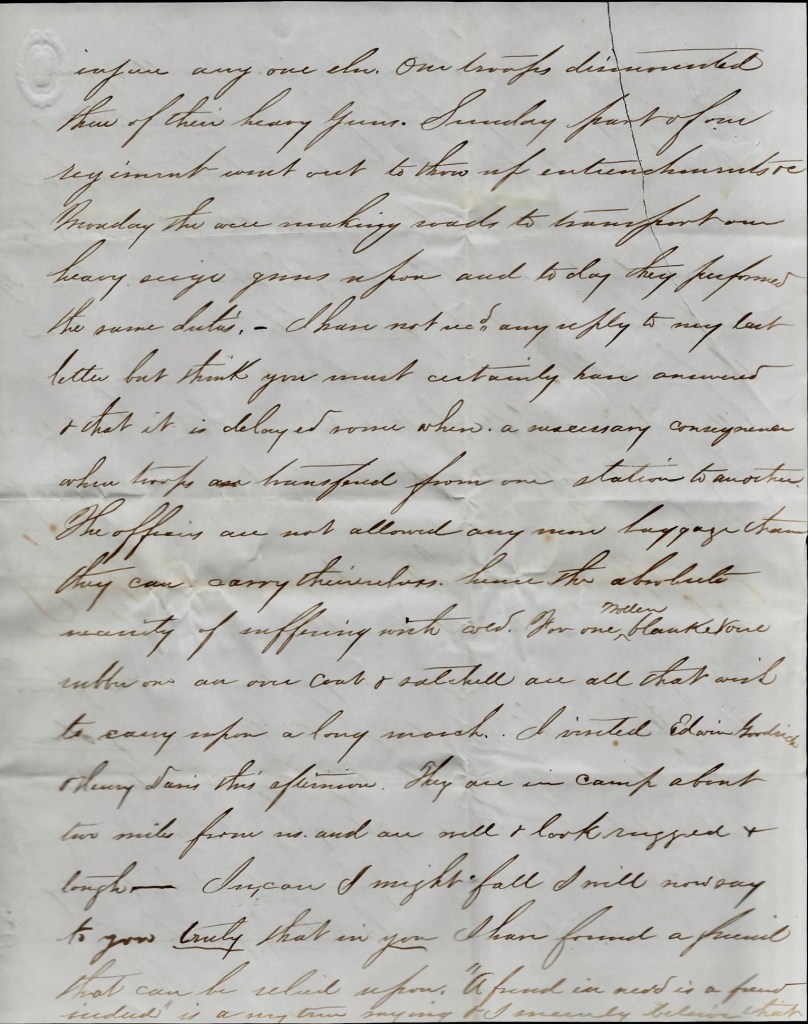 injure any one else. Our troops dismounted
three of their heavy Guns. Sunday part of our
regiment went out to throw up entrenchments &c
Monday the were making roads to transport our
heavy seige guns upon and to day they performed
the same duties. - I have not recd any reply to my last
letter but think you must certainly have answered
& that it is delayed some where. a necessary consequence
when troops are transfered from one station to another.
The officers are not allowed any more baggage than
they can carry theirselves. hence the absolute
necesity of suffering with cold. For one Wollen blanket one
rubber one an over coat & satchell are all that wish
to carry upon a long march. I visited Edwin Goodrich
& Henry Davis this afternoon. They are in camp about
two miles from us. and are well & look rugged &
tough - In case I might fall I will now say
to you truly that in you I have found a friend
that can be relied upon. "A friend in need is a friend
indeed" is a very true saying & I sincerely believe that